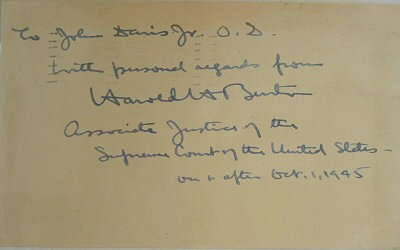 To John Davis Jr. O.D.
with personal regards from
Harold H Burton
Associate Justice of the
Supreme Court of the United States -
on & after Oct. 1, 1945